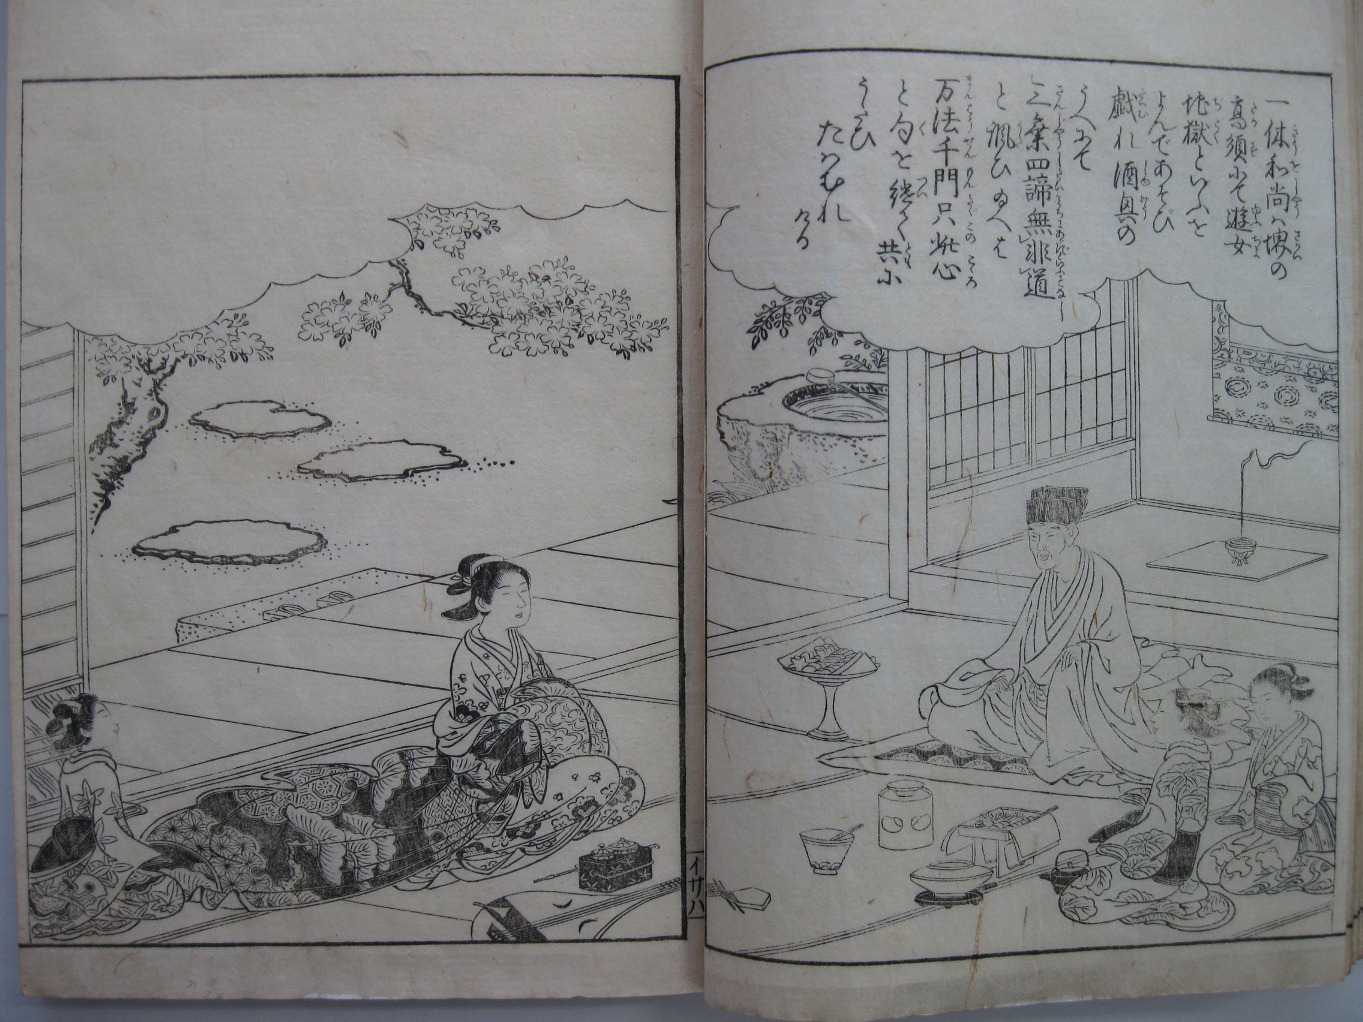 一休和尚ハ堺の
高須にて遊女
地獄といふを
よんであそび
戯れ酒興の
うへにて
三乗四諦無非道
と諷ひ給へば
万法千門只此心
と句を継て共に
うたひ
たはむれ
ける
イサハ